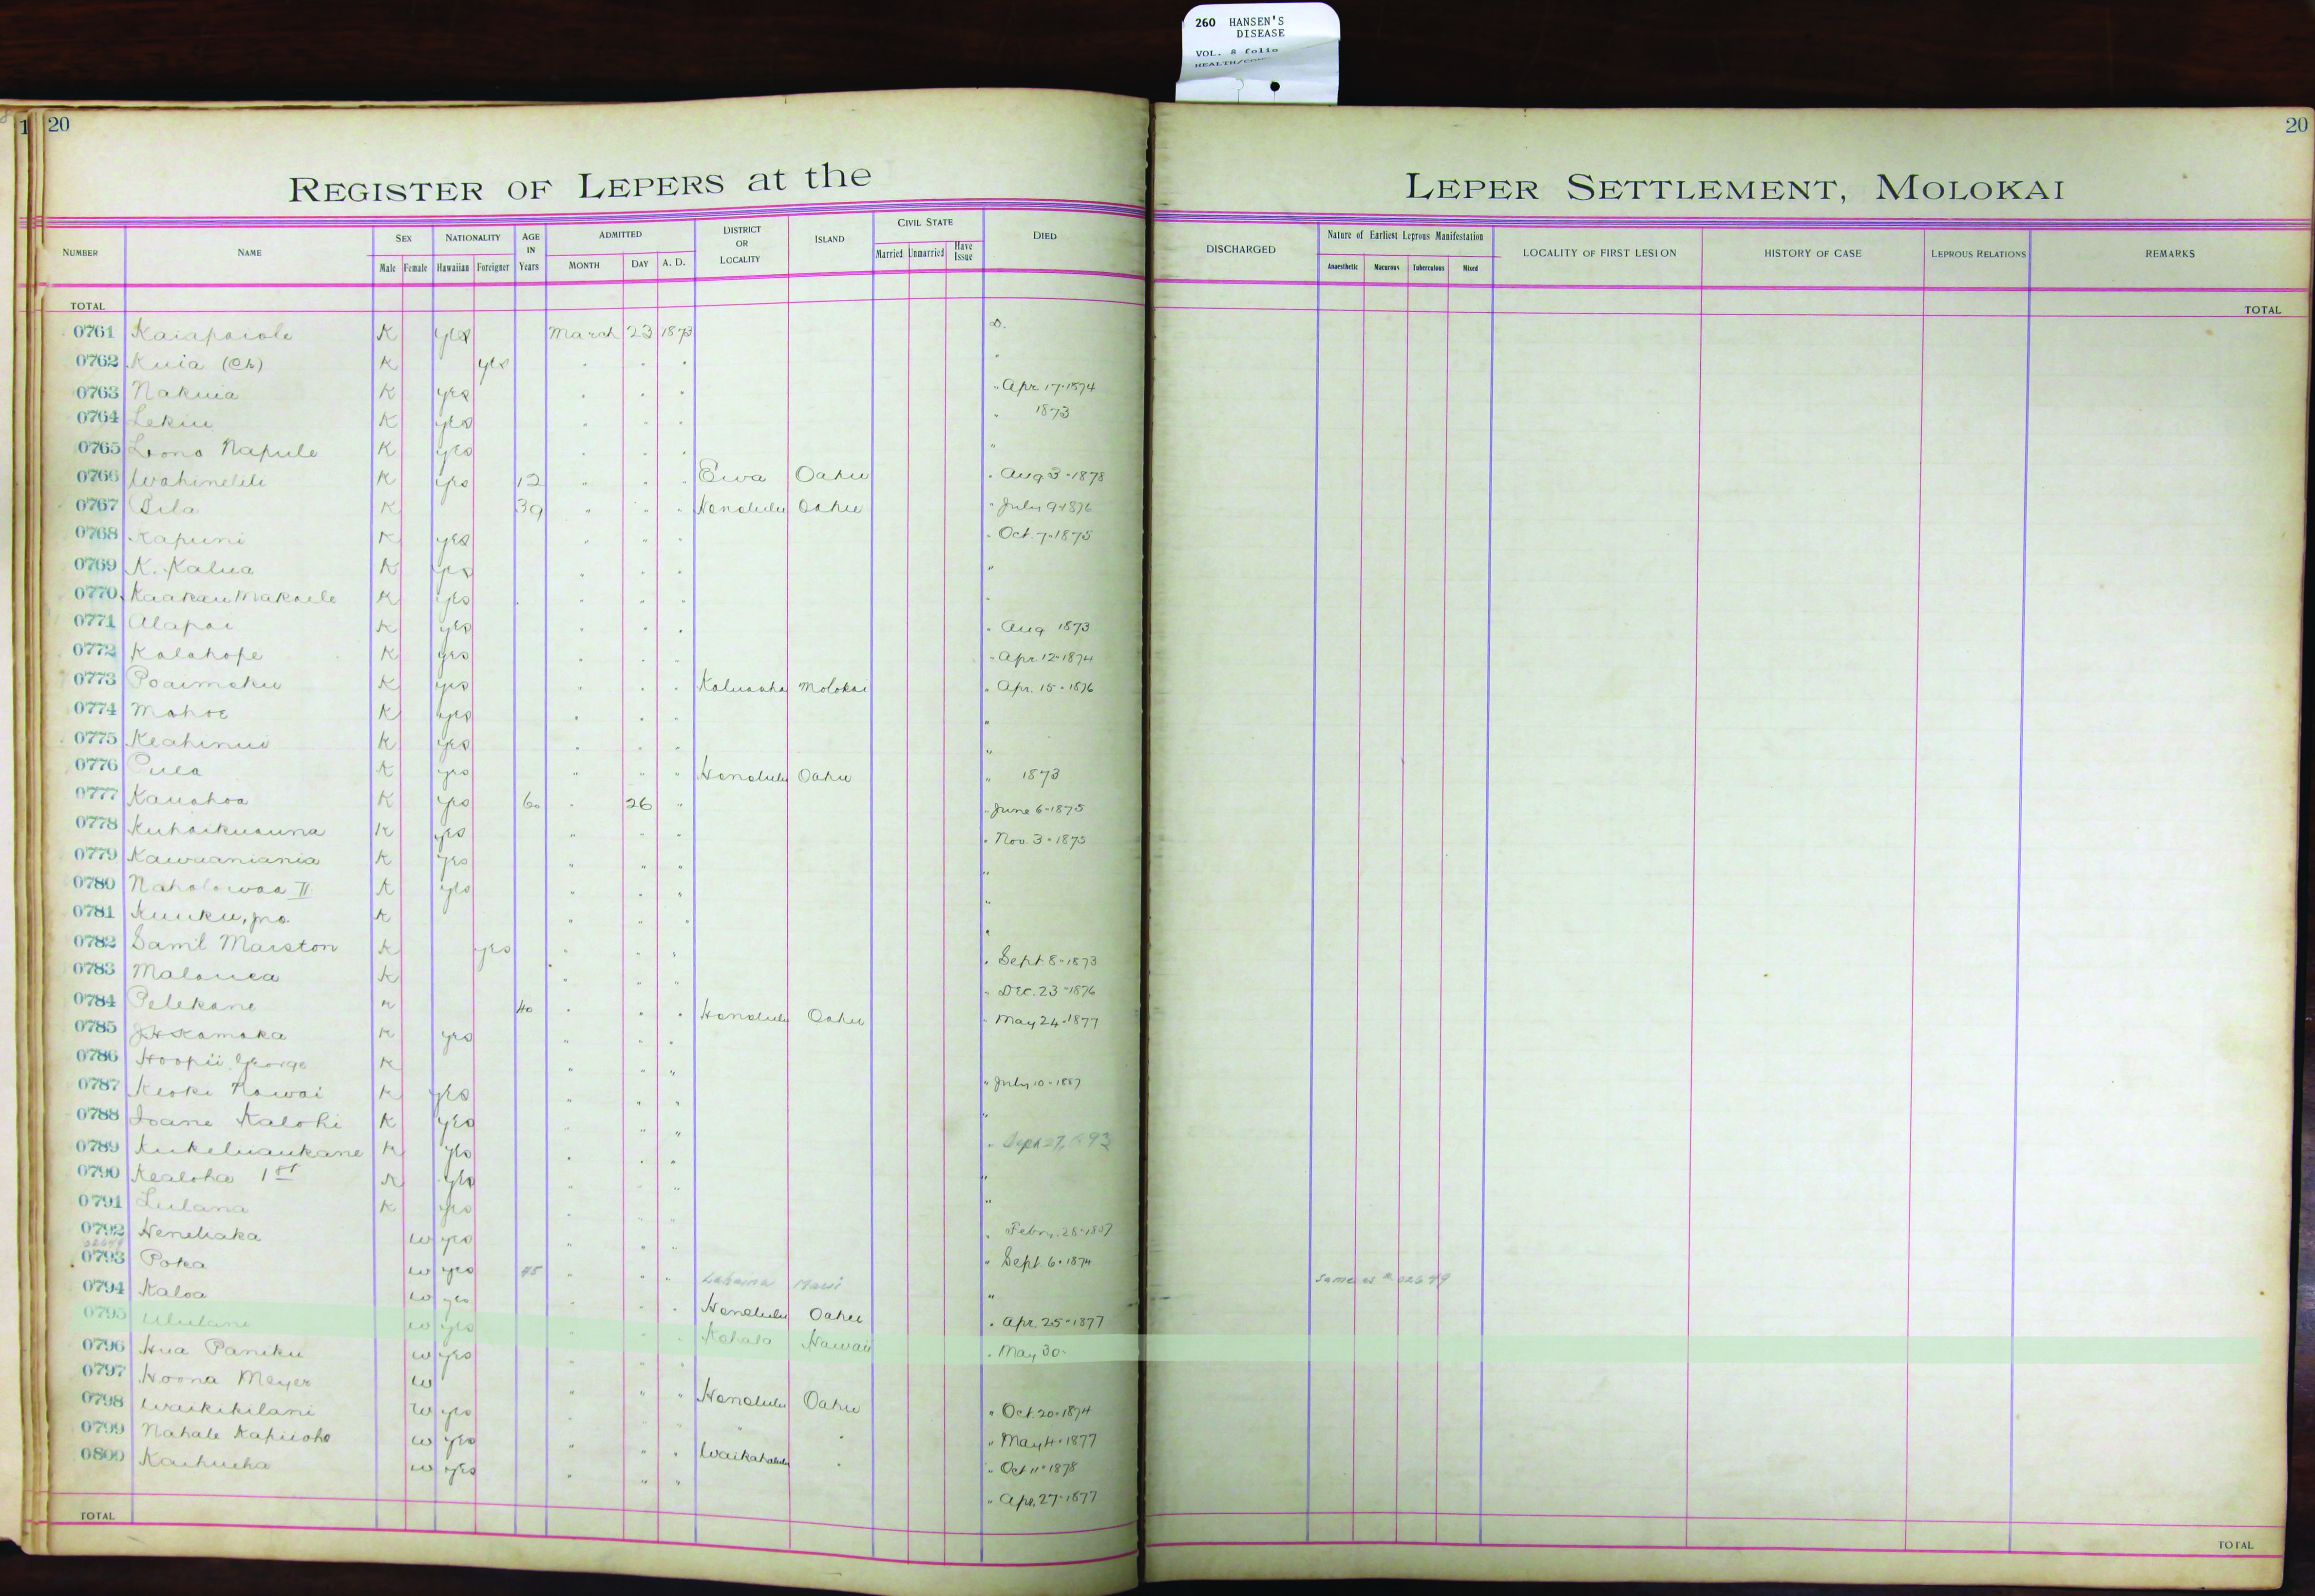 260 HANSEN'S
DISEASE
VOL. 8 folio
HEALTH/
1 20
20
REGISTER OF LEPERS at the LEPER SETTLEMENT, MOLOKAI
NUMBER NAME SEX Male Female NATIONALITY Hawaiian Foreigner AGE IN Years ADMITTED MONTH DAY A. D. DISTRICT OR LOCALITY ISLAND CIVIL STATE Married Unmarried Have Issue DIED DISCHARGED Nature of Earliest Leprous Manifestation Anaesthetic Macurous Tuberculous Mixed LOCALITY OF FIRST LESION HISTORY OF CASE LEPROUS RELATIONS REMARKS
TOTAL TOTAL
0761 Kaiapaiole K yes March 23 1873 D.
0762 Kuia (Ch) K yes " " " "
0763 Nakuia K yes " " " " Apr. 17-1874
0764 Lekiu K yes " " " " 1873
0765 Lono Napule K yes " " " "
0766 Wahinelili K yes 12 " " " Ewa Oahu " Aug 3-1878
0767 Pila K 39 " " " Honolulu Oahu " July 9-1876
0768 Kapuni K yes " " " " Oct. 7-1875
0769 K. Kalua K yes " " " "
0770 Kaakau Makaele K yes " " " "
0771 Alapai K yes " " " " Aug 1873
0772 Kalahope K yes " " " " Apr. 12-1874
0773 Poaimoku K yes " " " Kaluaaha Molokai " Apr. 15-1876
0774 Mahoe K yes " " " "
0775 Keahinui K yes " " " "
0776 Puea K yes " " " Honolulu Oahu " 1873
0777 Kauahoa K yes 60 " 26 " " June 6-1875
0778 Kuhaikuauna K yes " " " " Nov. 3-1875
0779 Kawaaniania K yes " " " "
0780 Naholowaa II K yes " " " "
0781 Kuuku, Jno. K " " " "
0782 Saml Marston K yes " " " " Sept 8-1873
0783 Malanea K " " " " Dec. 23-1876
0784 Pelekane K 40 " " " Honolulu Oahu " May 24-1877
0785 J.H. Kamaka K yes " " "
0786 Hoopii George K " " " " July 10-1887
0787 Keoki Nawai K yes " " " "
0788 Ioane Kalohi K yes " " " " Sept 27, 1893
0789 Kukeluaukane K yes " " " "
0790 Kealoha 1st K yes " " " "
0791 Lulana K yes " " " " Febr. 28-1887
0792 Heneliaka W yes " " " " Sept. 6-1874
02649
0793 Poka W yes 45 " " " Lahaina Maui " Same as # 02649
0794 Kaloa W yes " " " Honolulu Oahu " Apr. 25-1877
0795 Ululani W yes " " " Kohala Hawaii " May 30-
0796 Hua Paniku W yes " " "
0797 Hoona Meyer W " " " Honolulu Oahu " Oct. 20-1874
0798 Waikikilani W yes " " " " " " May 4-1877
0799 Nahale Kapuoho W yes " " " Waikahalulu " " Oct 11-1878
0800 Kaihueha W yes " " " " Apr. 27-1877
TOTAL TOTAL